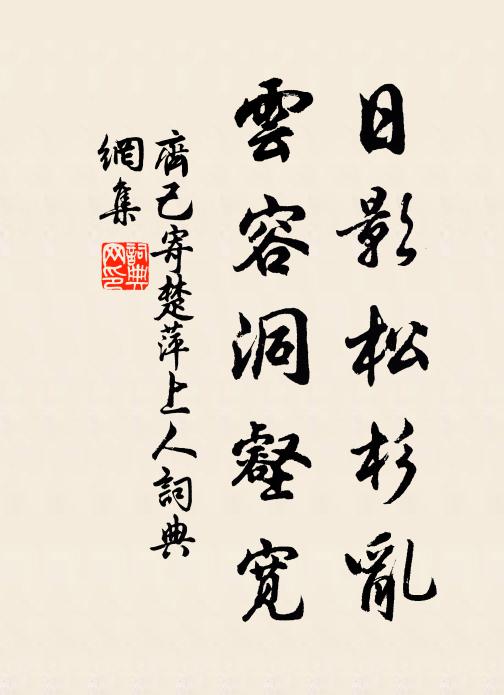 日影松杉亂
雲容洞壑寬
齊己寄楚萍上人詞典
網集
詞典
网印